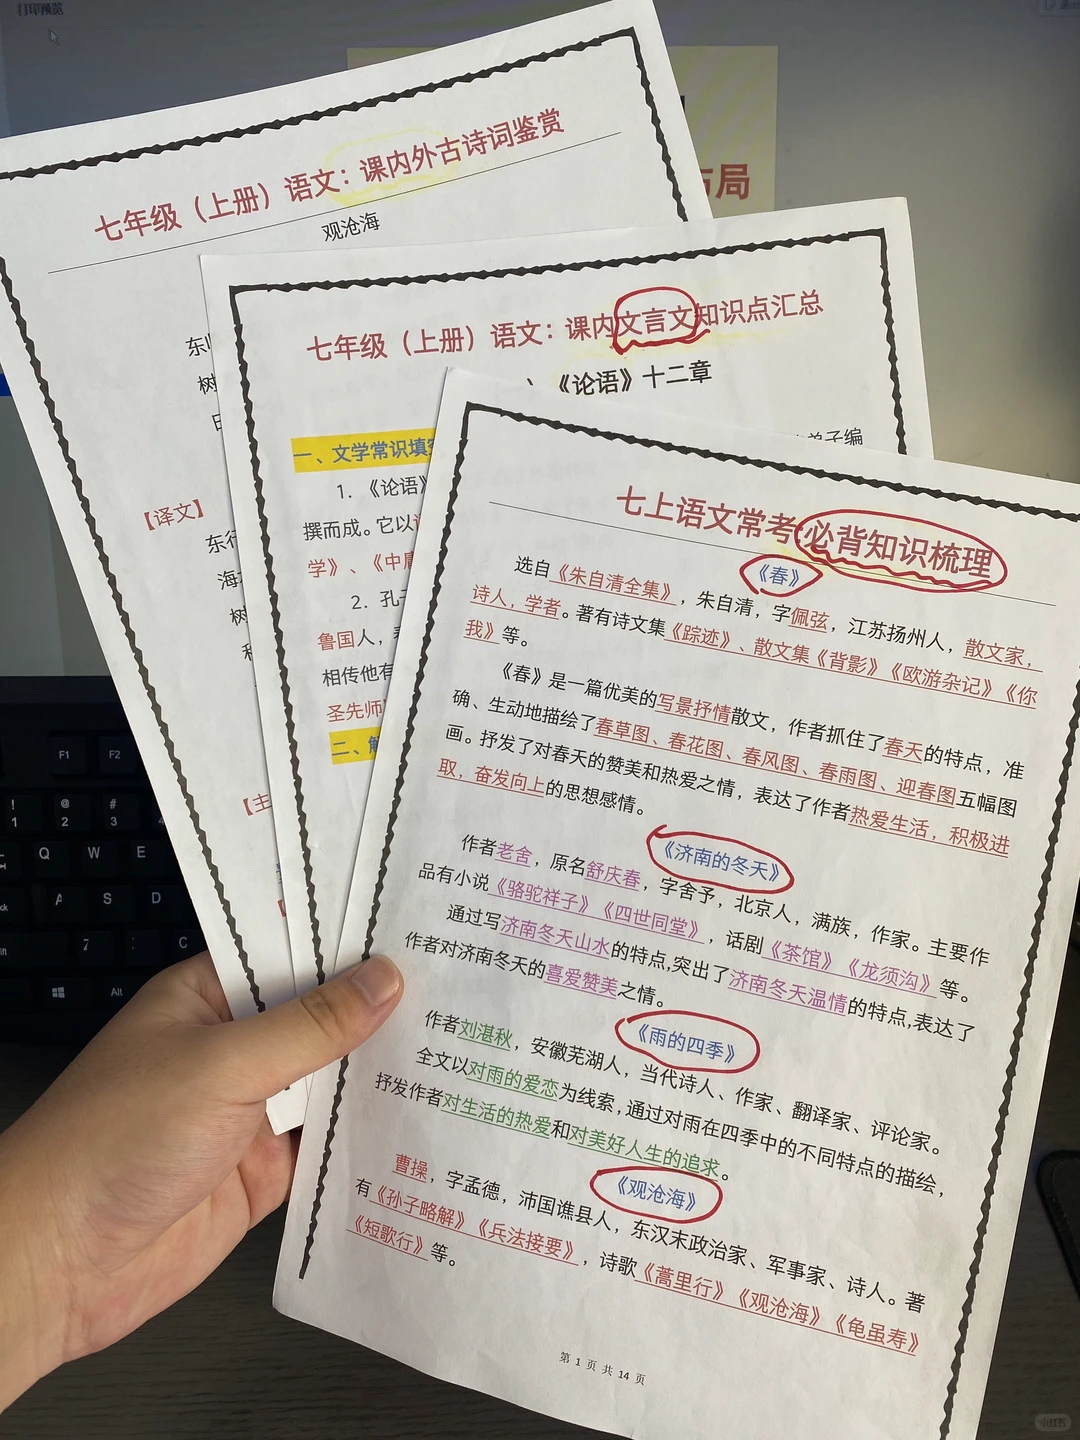 打印预览
布局
七年级（上册）语文：课内外古诗词鉴赏
观沧海
东
树
日
【译文】
东行
海
树
【主
七年级（上册）语文：课内文言文知识点汇总
、《论语》十二章
弟子编
一、文学常识填空
1. 《论语》
撰而成。它以
学》、《中庸
2. 孔子
鲁国人，
相传他有
圣先师
二、解
七上语文常考必背知识梳理
《春》
选自《朱自清全集》，朱自清，字佩弦，江苏扬州人，散文家，
诗人，学者。著有诗文集《踪迹》、散文集《背影》《欧游杂记》《你
我》等。
《春》是一篇优美的写景抒情散文，作者抓住了春天的特点，准
确、生动地描绘了春草图、春花图、春风图、春雨图、迎春图五幅图
画。抒发了对春天的赞美和热爱之情，表达了作者热爱生活，积极进
取，奋发向上的思想感情。
《济南的冬天》
作者老舍，原名舒庆春，字舍予，北京人，满族，作家。主要作
品有小说《骆驼祥子》《四世同堂》，话剧《茶馆》《龙须沟》等。
通过写济南冬天山水的特点,突出了济南冬天温情的特点,表达了
作者对济南冬天的喜爱赞美之情。
《雨的四季》
作者刘湛秋，安徽芜湖人，当代诗人、作家、翻译家、评论家。
全文以对雨的爱恋为线索,通过对雨在四季中的不同特点的描绘，
抒发作者对生活的热爱和对美好人生的追求。
《观沧海》
曹操，字孟德，沛国谯县人，东汉末政治家、军事家、诗人。著
有《孙子略解》《兵法接要》，诗歌《蒿里行》《观沧海》《龟虽寿》
《短歌行》等。
第 1 页 共 14 页
F1 F2
! @ # 
1 2 3 4
Q W E
A S D
Z C
Alt
小红书